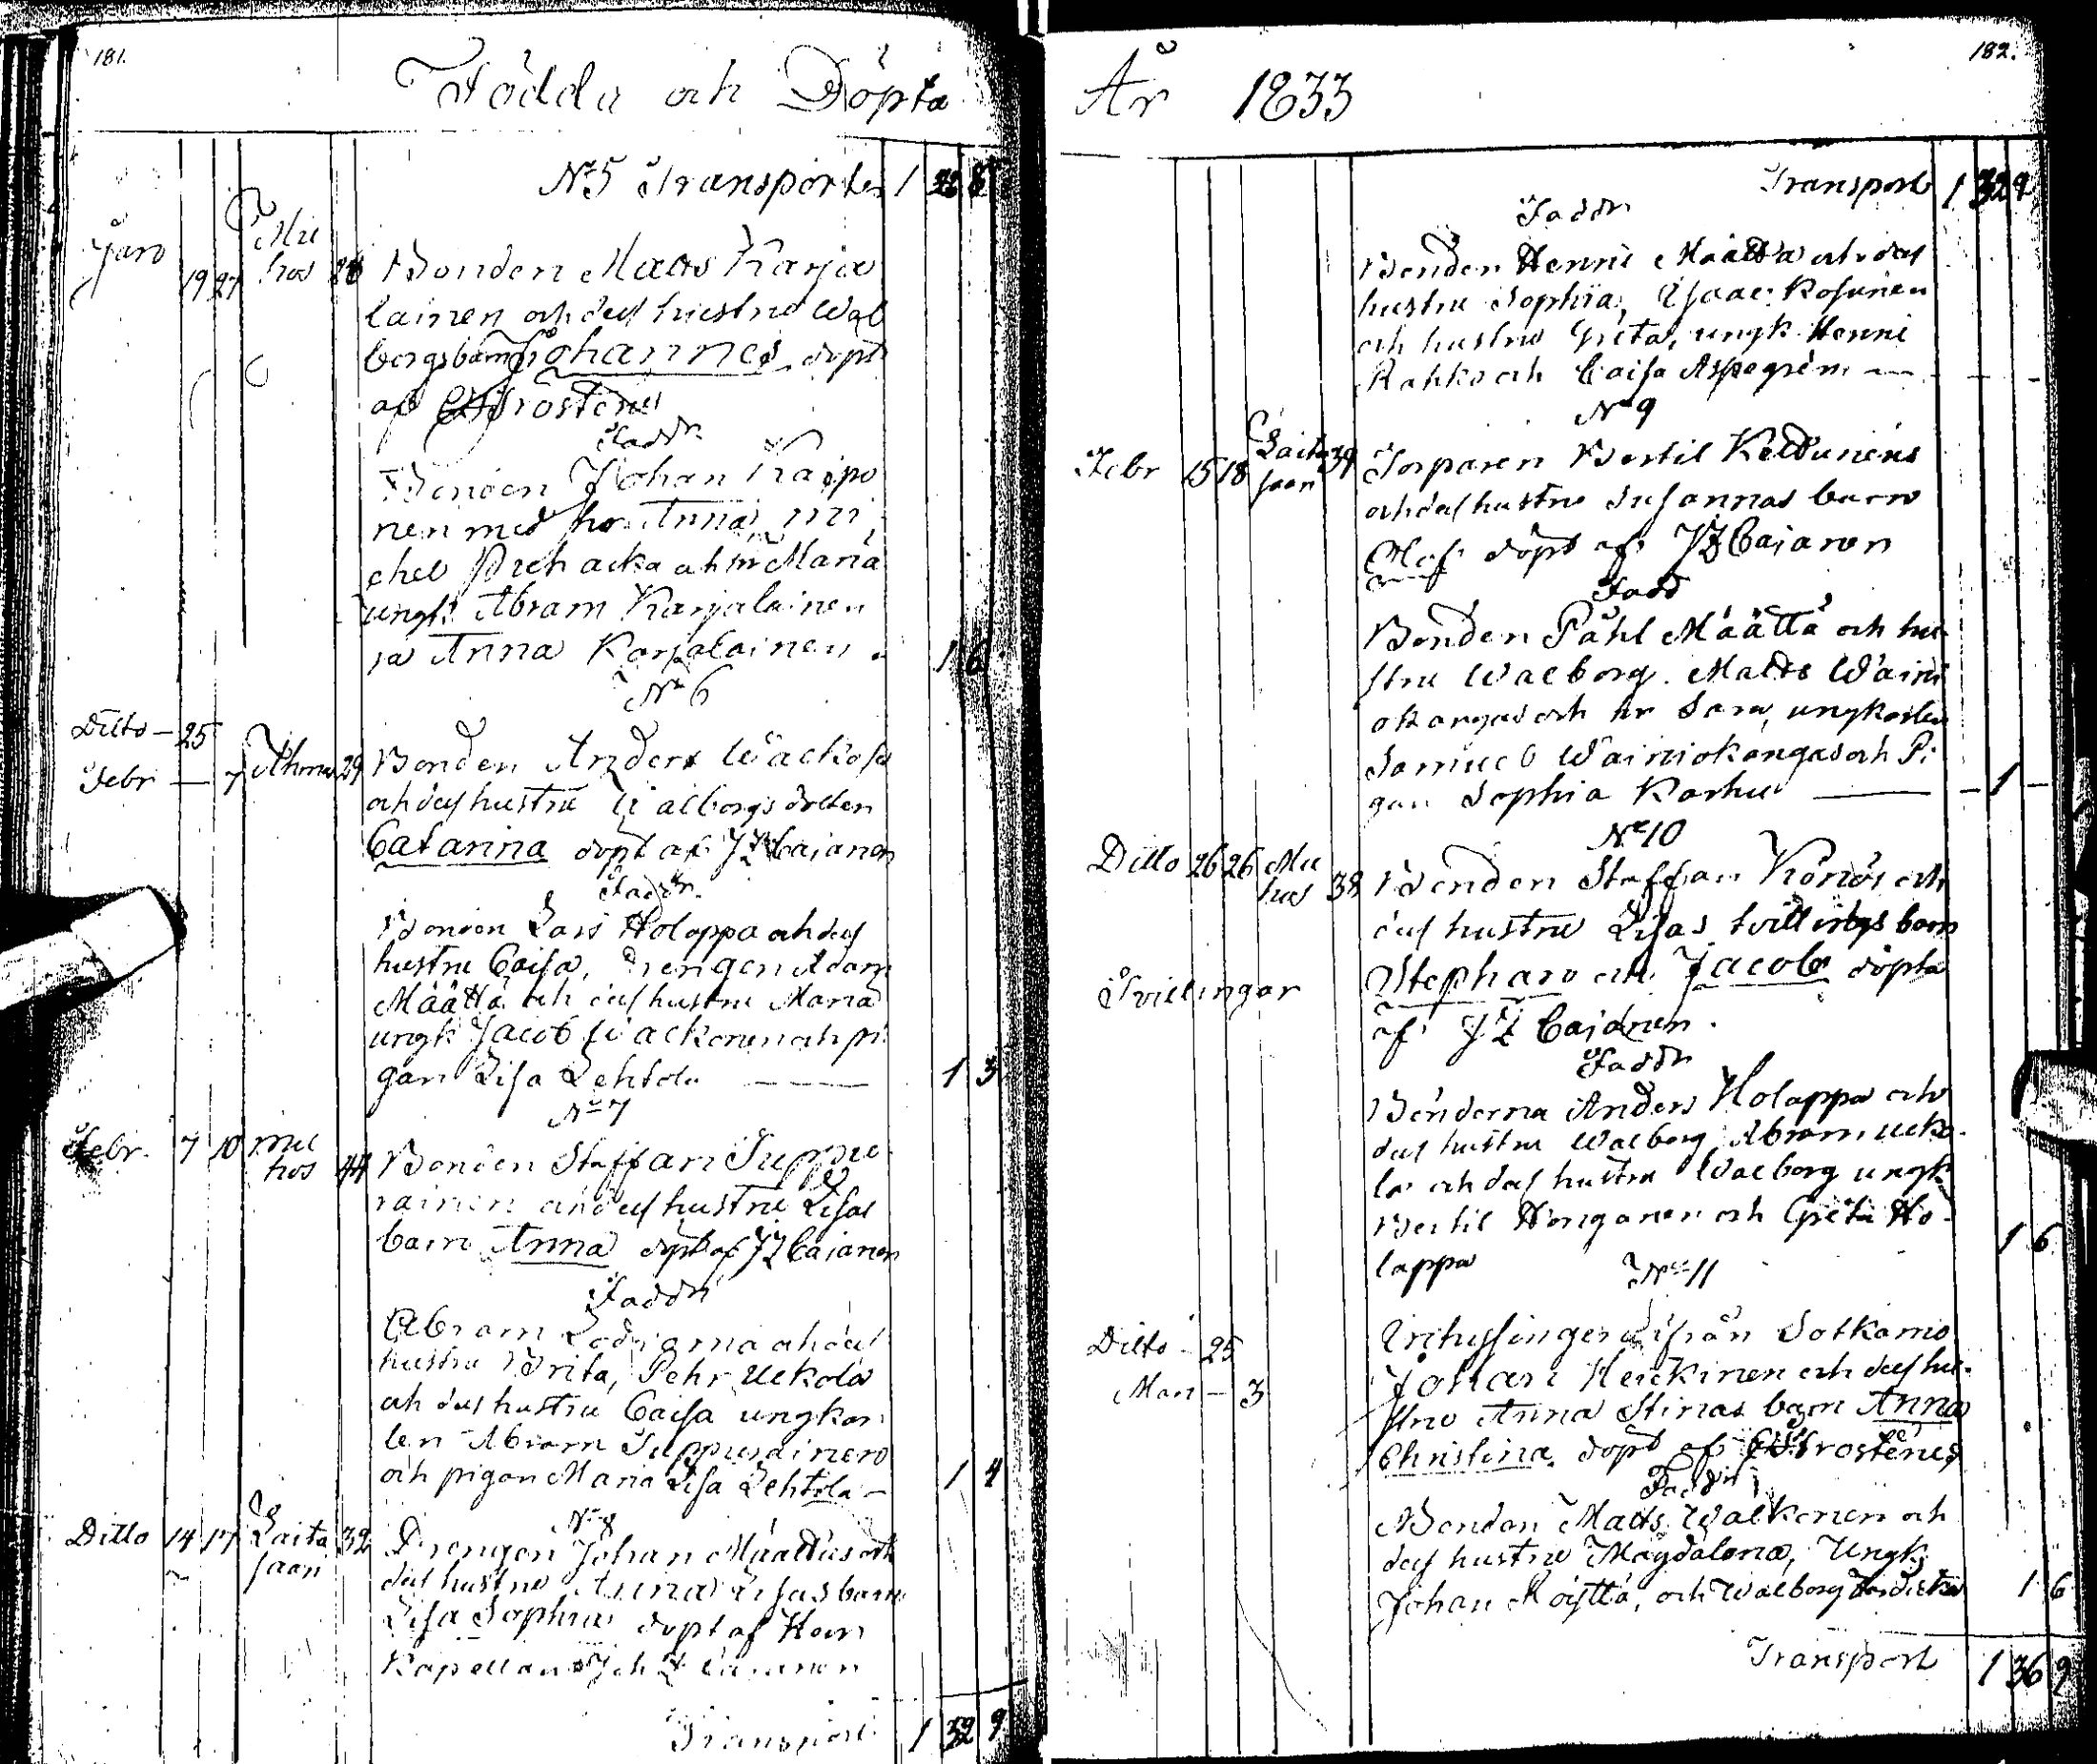 181.
Födda och Döpta
No 5 Transporter 1 28 8
Jan 19 27 Mu
hos 28 Bonden Matts Karja
lainen och dess hustru Wal
borgs barn Johannes döpt
af Frosterus
Faddr
Bonden Johan Karpo
nen med hr Anna, Mi
chel Prehacka och hr Maria
ungk. Abram Karjalainen
ja Anna Karjalainen 1 6
No 6
Ditto — 25
Febr — 7 Ahmas 29 Bonden Anders
och dess hustru Walborgs dotter
Catarina döpt af JZ Cajanen
Faddr.
Bonden Lars Holappa och dess
hustru Caisa, Drengen Adam
Määttä och dess hustru Maria
ungk Jacob och pi
gan Lisa Lehtola — 1 3
No 7
Febr. 7 10 Mu
hos 44 Bonden Staffan Suppu
rainen och dess hustru Lisas
barn Anna döpt af JZ Cajanen
Faddr
Abram och dess
hustru Brita, Pehr Uekola
och dess hustru Caisa ungkar
len Abram Suppurainen
och pigan Maria Lisa Lehtola — 1 4
No 8
Ditto 14 17 Laita
saari 32 Drengen Johan Määttäs och
dess hustru Anna Lisas barn
Lisa Sophia döpt af Herr
Kapellan Joh Z Cajanen
Transport 1 32 9
182.
År 1833
Transport 1 32 9
Faddr
Bonden Henric Määttä och dess
hustru Sophia, Isaac Kosunen
och hustru Greta, ungk. Henric
Rahko och Caisa Aspegren —
No 9
Febr 15 18 Laita
saari 39 Torparen Bertil Keldunens
och dess hustru Susannas barn
Olof döpt af JZ Cajanen
Fadd
Bonden Påhl Määttä och hu
stru Walborg. Matts Waini
okangas och hr Sara, ungkarlen
Samuel Wainiokangas och Pi
gan Sophia Karhu — 1 —
No 10
Ditto 26 26 Mu
hos 38 Bonden Staffan Könös och
dess hustru Lisas tvillings barn
Tvillingar Stephan och Jacob döpta
af JZ Cajanen.
Faddr
Bönderna Anders Holappa och
dess hustru Walborg Abram Ueko-
la och dess hustru Walborg ungk
Bertil Honganen och Greta Ho-
lappa 1 6
No 11
Ditto — 25 Inhysingen ifrån Sotkamo
Mars — 3 Johan Heickinen och dess hu-
stru Anna Stinas barn Anna
Christina döpt af Frosterus
Faddr
Bonden Matts Walkonen och
dess hustru Magdalena, Ungk
Johan Köyttä, och Walborg 1 6
Transport 1 36 9